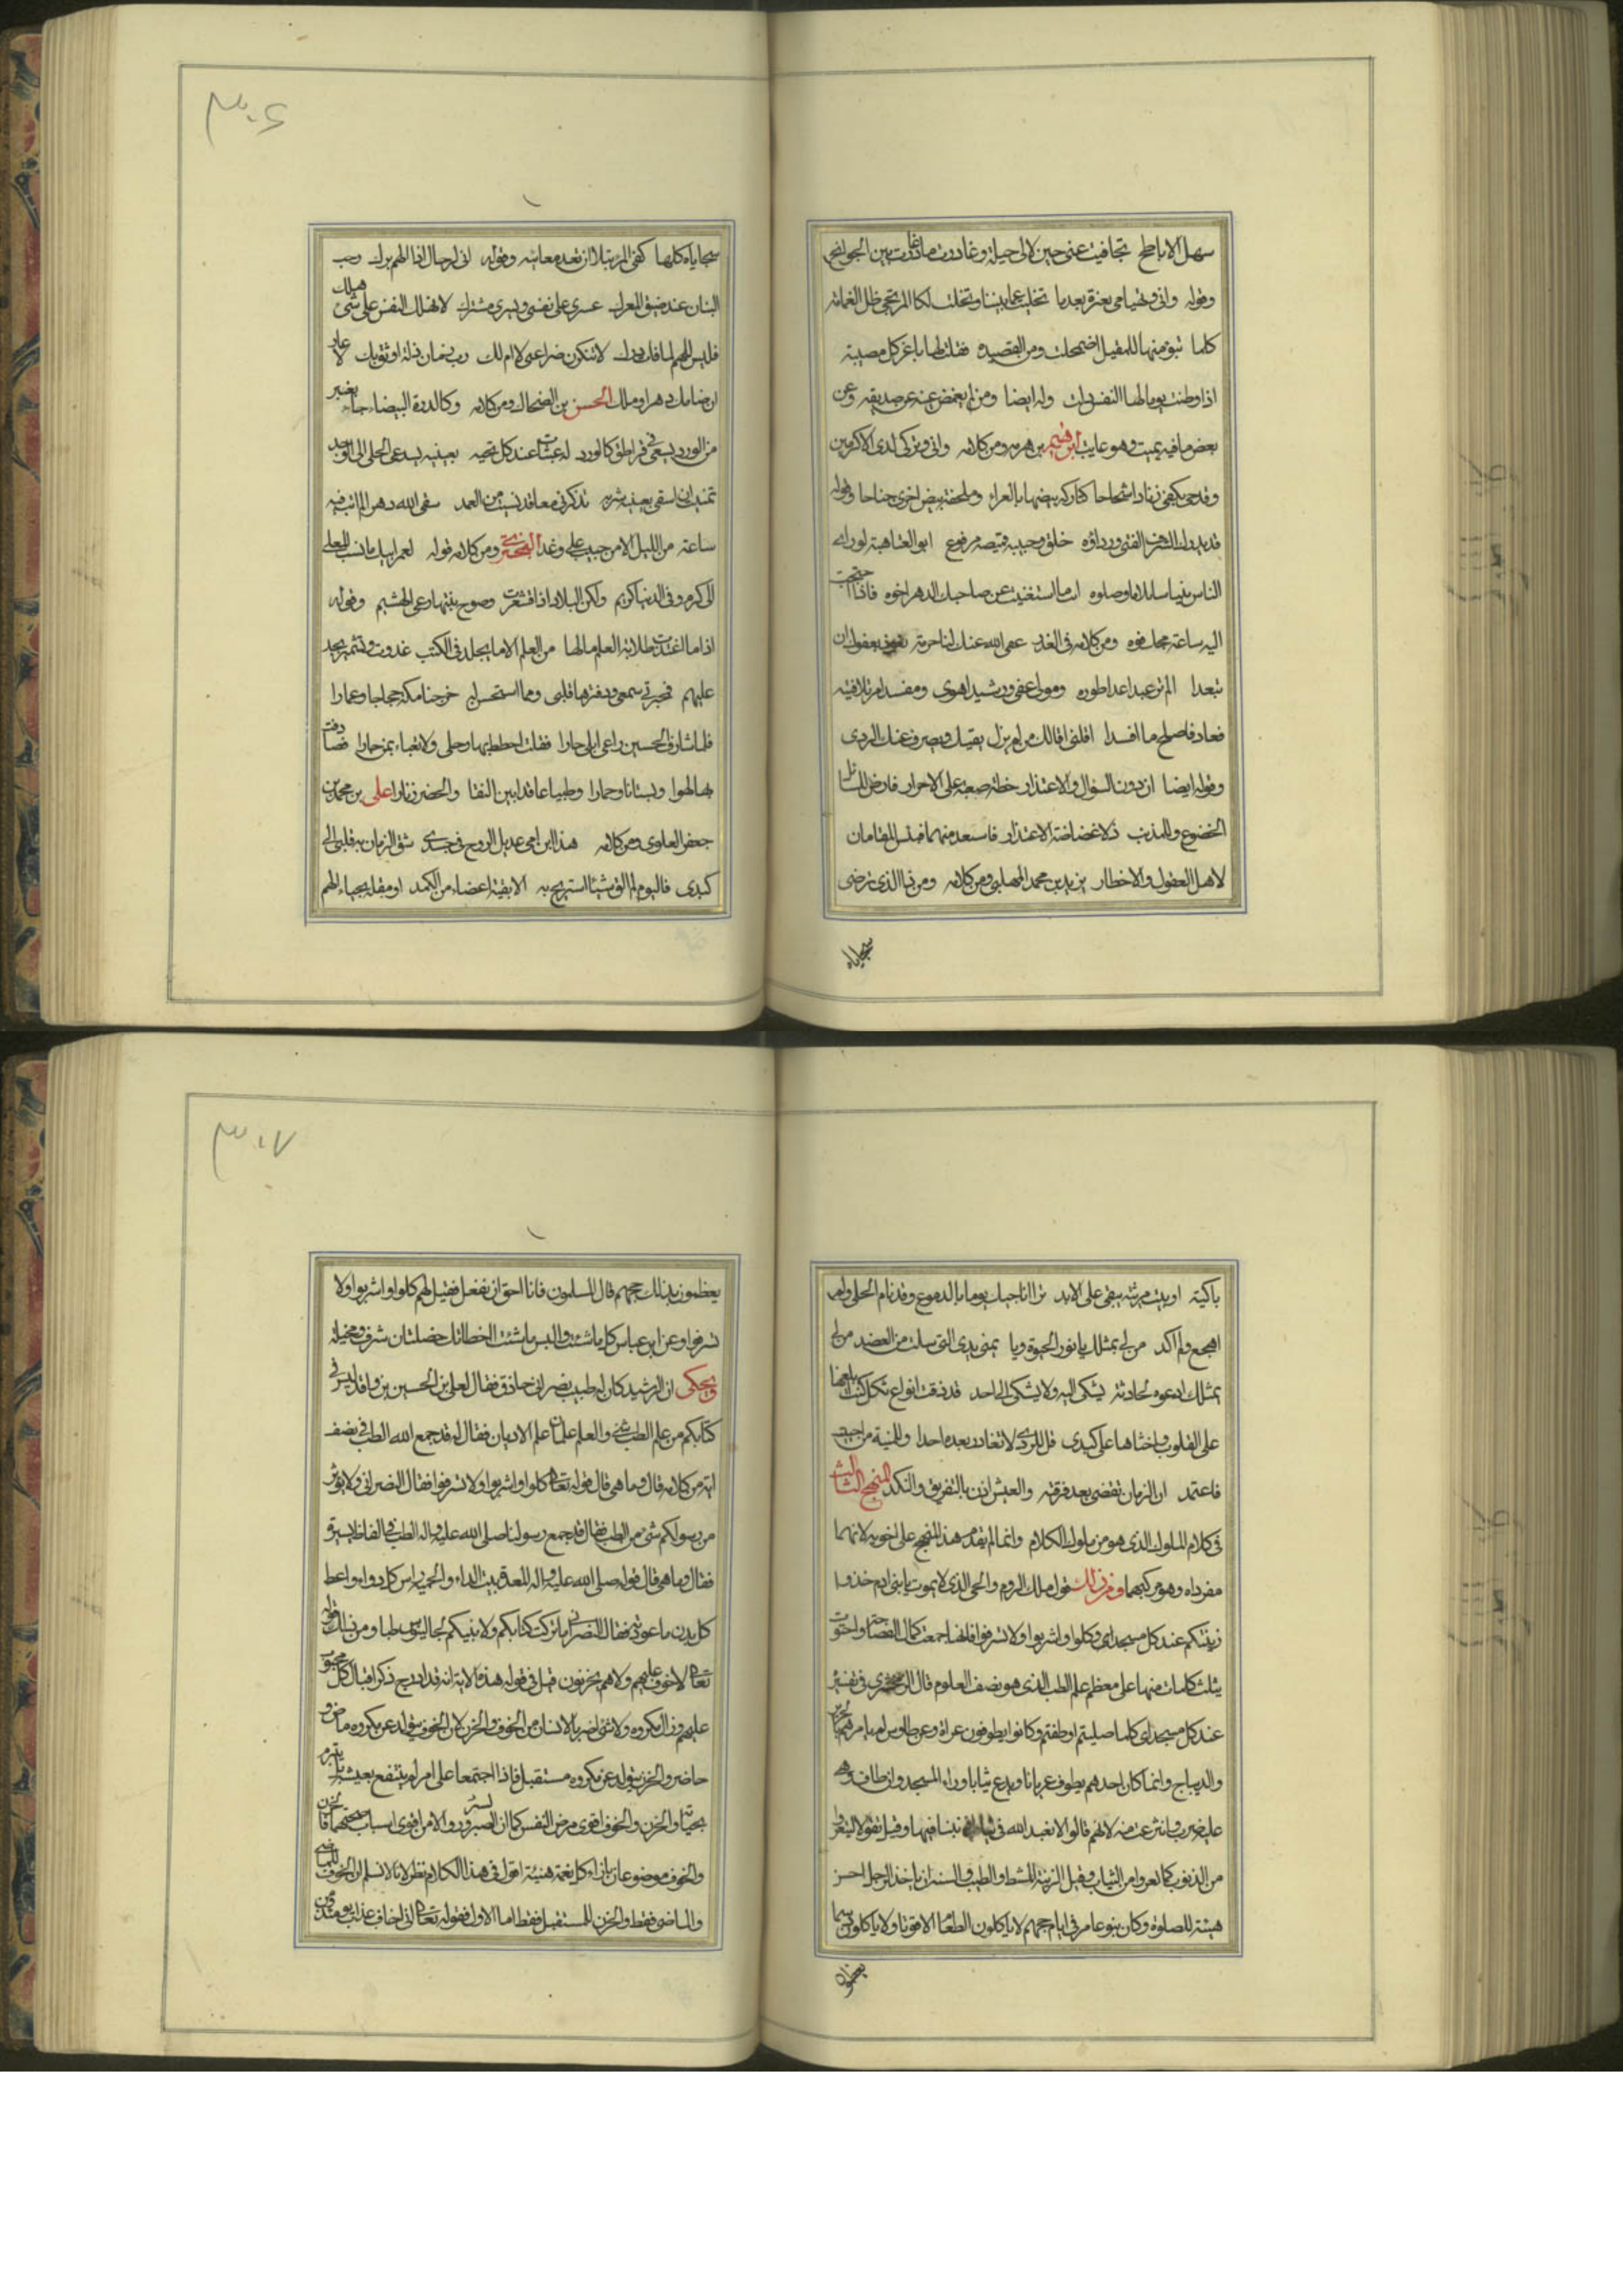 سهل الاباطح تجافيت عنى حين لا لى حيلة وغادرت ما غادرت بين الجوانح
وقوله وانى وتهيامى بعزة بعد ما تخليت عما بيننا وتخلت لكا المرتجى ظل الغمامة
كلما تبوء منها للمقيل اضمحلت ومن القصيده فقلت لها يا عز كل مصيبة
اذا وطنت يوما لها النفس ذلت وله ايضا ومن لم يغمض عينه عن صديقه وعن
بعض ما فيه يمت وهو عاتب ابن هرمه ومن كلامه وانى وتركى ندى الاكرمين
وقدحى بكفى زنادا شحاحا كتاركة بيضها بالعراء وملحفة بيض اخرى جناحا وقوله
قد يدرك الشرف الفتى ورداؤه خلق وجيب قميصه مرفوع ابو العتاهية لو راى
الناس نبيا سائلا ما وصلوه انت ما استغنيت عن صاحبك الدهر اخوه فاذا احتجت
اليه ساعة مجك فوه ومن كلامه فى العذر عفى الله عنك لنا حرمة تعوذ بعفوك ان
تبعدا الم تر عبدا عدا طوره ومولى عفى ورشيدا هوى ومفسد امر تلافيته
فعاد فاصلح ما افسدا اقلنى اقالك من لم يزل يقيك ويصرف عنك الردى
وقوله ايضا ان دون السؤال والاعتذار خطة صعبة على الاحرار فارض للسائل
الخضوع وللمذنب ذلا غضاضة الاعتذار فاستعذ منهما فبئس المقامان
لاهل العقول والاخطار يزيد بن محمد المهلبى ومن كلامه ومن ذا الذى ترضى
سجاياه
۳۰۶
سجاياه كلها كفى المرء نبلا ان تعد معائبه وقوله انى لرحال اذا الهم برك رحب
اللبان عند ضيق المعرك عسرى على نفسى ويسرى مشترك لا تهلك النفس على شىء هلك
فليس للهم لما فات درك لا تنكرن ضراعتى لا ام لك رب زمان ذله ارفق بك لا عار
ان ضامك دهر او ملك الحسن بن الضحاك ومن كلامه وكالدرة البيضاء حيا بعنبر
من الورد يسعى فى قراطق كالورد له عبثات عند كل تحية بعينيه يستدعى الخلى الى الوجد
تمنيت ان اسقى بعينيه شربه تذكرنى ما قد نسيت من العهد سقى الله دهرا لم ابت فيه
ساعة من الليل الا من حبيب على وعد البحترى ومن كلامه قوله لعمر ابيك ما نسب المعلى
الى كرم وفى الدنيا كريم ولكن البلاد اذا اقشعرت وصوح نبتها رعى الهشيم وقوله
اذا ما اغتدت طلابة العلم مالها من العلم الا ما يخلد فى الكتب غدوت وتشمير بجد
عليهم فمحبرتى سمعى ودفترها قلبى ومما استحسن له خرجنا مكة حجاجا وعمارا
فلما شارف الحسين راعى ابلى حارا فقلت احطط بها رحلى ولا تعباء بمن حارا فصادفت
بها لهوا وبستانا وخمارا وظبيا عاقدا بين النقا والخصر زنارا على بن محمد بن
جعفر العلوى ومن كلامه هذا ابن امى عديل الروح فى جسدى شق الزمان به قلبى الى
كبدى فاليوم لم الق شيئا استريح به الا بقية اعضاء من الكمد او مقلة بحياء الهم
باكية او بيت مرثية يبقى على الابد ترى انا جيك يوما بالدموع وقد نام الخلى ولم
اهجع ولم اكد من لى بمثلك يا نور الحيوة ويا يمنى يدى التى سلت من العضد من لى
بمثلك ادعوه لحادثة يشكى اليه ولا يشكى الى احد قد ذقت انواع ثكل كنت ابلغها
على القلوب واخشاها على كبدى قل للردى لا تغادر بعده احدا وللمنية من احببت
فاعتمد ان الزمان تقضى بعد فرقته والعيش اذن بالتفريق والنكد المنهج الثالث
فى كلام الملوك الذى هو من ملوك الكلام وانما لم يقدم هذا المنهج على اخويه لانهما
مفرداه وهو مركبهما ومن ذلك قول ملك الروم والحى الذى لا يموت يا بنى ادم خذوا
زينتكم عند كل مسجد اى وكلوا واشربوا ولا تسرفوا فانها جمعت كمال الفصاحة واحتوت
بثلث كلمات منها على معظم علم الطب الذى هو نصف العلوم قال الزمخشرى فى تفسيره
عند كل مسجد اى كلما صليتم او طفتم وكانوا يطوفون عراة وعن طاوس لم يامرهم بالحرير
والديباج وانما كان احدهم يطوف عريانا ويدع ثيابه وراء المسجد وان طاف وهى
عليه ضرب وانتزعت منه لانهم قالوا لا نعبد الله فى ثياب اذنبنا فيها وقيل تفولا ليتعروا
من الذنوب كما تعروا من الثياب وقيل الزينة المشط والطيب والسنة ان ياخذ الرجل احسن
هيئته للصلوة وكان بنو عامر فى ايام حجهم لا ياكلون الطعام الا قوتا ولا ياكلون دسما
يعظمون
۳۰۷
يعظمون بذلك حجهم قال المسلمون فانا احق ان نفعل فقيل لهم كلوا واشربوا ولا
تسرفوا وعن ابن عباس كل ما شئت والبس ما شئت ما اخطاتك خصلتان سرف ومخيلة
ويحكى ان الرشيد كان له طبيب نصرانى حاذق فقال لعلى بن الحسين بن واقد ليس فى
كتابكم من علم الطب شىء والعلم علمان علم الاديان فقال له قد جمع الله الطب فى نصف
اية من كلامه قال وما هى قال قوله تعالى كلوا واشربوا ولا تسرفوا فقال النصرانى ولا يوثر
من رسولكم شىء من الطب فقال قد جمع رسولنا صلى الله عليه واله الطب فى الفاظ يسيرة
فقال وما هى قال قوله صلى الله عليه واله المعدة بيت الداء والحمية راس كل دواء واعط
كل بدن ما عودته فقال النصرانى ما ترك كتابكم ولا نبيكم لجالينوس طبا ومن ذلك قوله
تعالى لا خوف عليهم ولا هم يحزنون قيل فى قوله هذه الاية انه قد ادرج ذكر اقبال كل محبوب
عليهم وزوال كل مكروه ولا شىء اضر بالانسان من الخوف والحزن لان الخوف يتولد عن مكروه ماض او
حاضر والحزن يتولد عن مكروه مستقبل فاذا اجتمعا على امرء لم ينتفع بعيشه بل يتبرم
بحياته والحزن والخوف اقوى مرض النفس كما ان السرور والامن اقوى اسباب صحتهما فالحزن
والخوف موضوعان بازاء كل نعمة هنيئة اقول فى هذا الكلام نظر لانا لا نسلم ان الخوف للماضى
والماضى فقط والحزن للمستقبل فقط اما الاول فقوله تعالى انى اخاف عذاب يوم